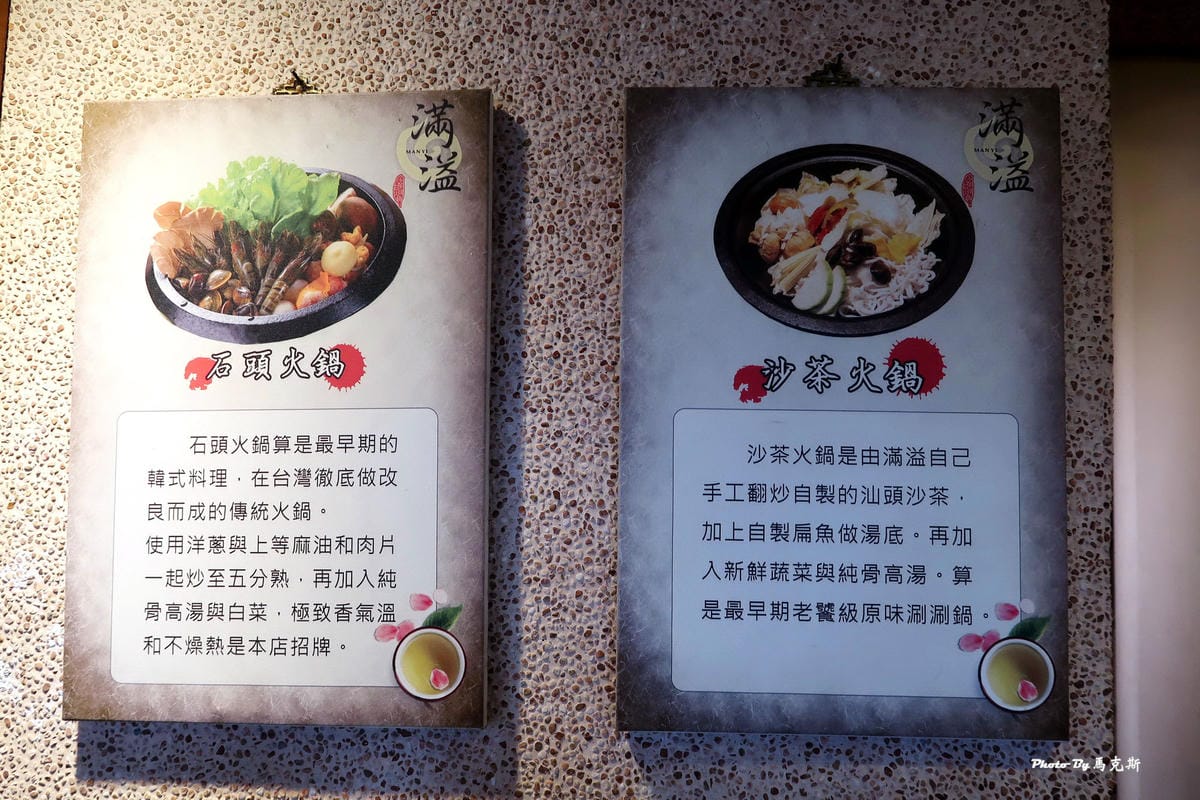 滿溢
MANYI
石頭火鍋
石頭火鍋算是最早期的
韓式料理，在台灣徹底做改
良而成的傳統火鍋。
使用洋蔥與上等麻油和肉片
一起炒至五分熟，再加入純
骨高湯與白菜，極致香氣溫
和不燥熱是本店招牌。
滿溢
MANYI
沙茶火鍋
沙茶火鍋是由滿溢自己
手工翻炒自製的汕頭沙茶，
加上自製扁魚做湯底。再加
入新鮮蔬菜與純骨高湯。算
是最早期老饕級原味涮涮鍋。
Photo By 馬克斯